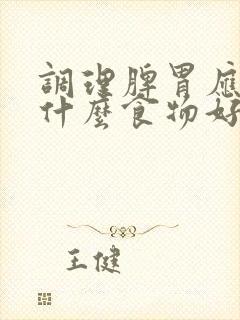 調理脾胃應
什麼食物好
王健